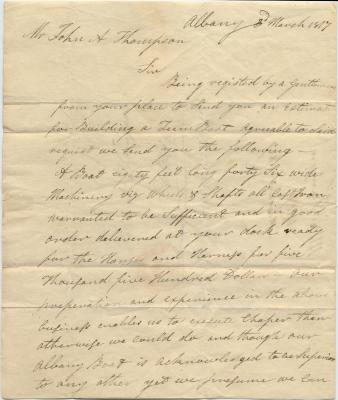 Albany 3d March 1817
Mr John A Thompson
Sir
Being requsted by a Gentleman
from your place to Send you an Estimat
for Building a TeamBoat agreeable to Said
request we Send you the following —
A Boat eighty feet long forty Six wide
Machinery viz Wheels & Shafts all Cast Iron
warranted to be Sufficient and in good
order delivered at your dock ready
for the Horses and Harness for five
Thousand five Hundred Dollars — our
preperation and experience in the above
business enables us to execute Cheper than
otherwise we could do and though our
Albany Boat is acknowledged to be Superior
to any other yet we presume we Can